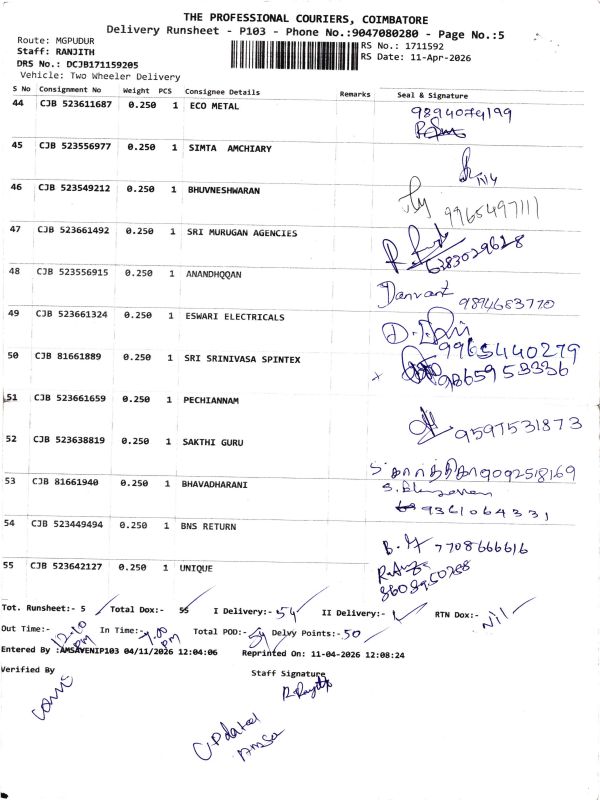 THE PROFESSIONAL COURIERS, COIMBATORE
Delivery Runsheet - P103 - Phone No.:9047080280 - Page No.:5
Route: MGPUDUR
Staff: RANJITH
DRS No.: DCJB171159205
Vehicle: Two Wheeler Delivery
RS No.: 1711592
RS Date: 11-Apr-2026
S No Consignment No Weight PCS Consignee Details Remarks Seal & Signature
44 CJB 523611687 0.250 1 ECO METAL 9894074199
45 CJB 523556977 0.250 1 SIMTA AMCHIARY
46 CJB 523549212 0.250 1 BHUVNESHWARAN 9965497111
47 CJB 523661492 0.250 1 SRI MURUGAN AGENCIES 6383029628
48 CJB 523556915 0.250 1 ANANDHQQAN 9894683770
49 CJB 523661324 0.250 1 ESWARI ELECTRICALS
9965440279
50 CJB 81661889 0.250 1 SRI SRINIVASA SPINTEX 9865953336
51 CJB 523661659 0.250 1 PECHIANNAM 9597531873
52 CJB 523638819 0.250 1 SAKTHI GURU 9092518169
53 CJB 81661940 0.250 1 BHAVADHARANI
9361064331
54 CJB 523449494 0.250 1 BNS RETURN 7708666616
55 CJB 523642127 0.250 1 UNIQUE
Tot. Runsheet:- 5 Total Dox:- 55 I Delivery:- 54 II Delivery:- 1 RTN Dox:- Nil
Out Time:- 12.10 PM In Time:- 7.00 PM Total POD:- 54 Delvy Points:- 50
Entered By :AMSAVENIP103 04/11/2026 12:04:06 Reprinted On: 11-04-2026 12:08:24
Verified By Staff Signature
Updated
Amsa